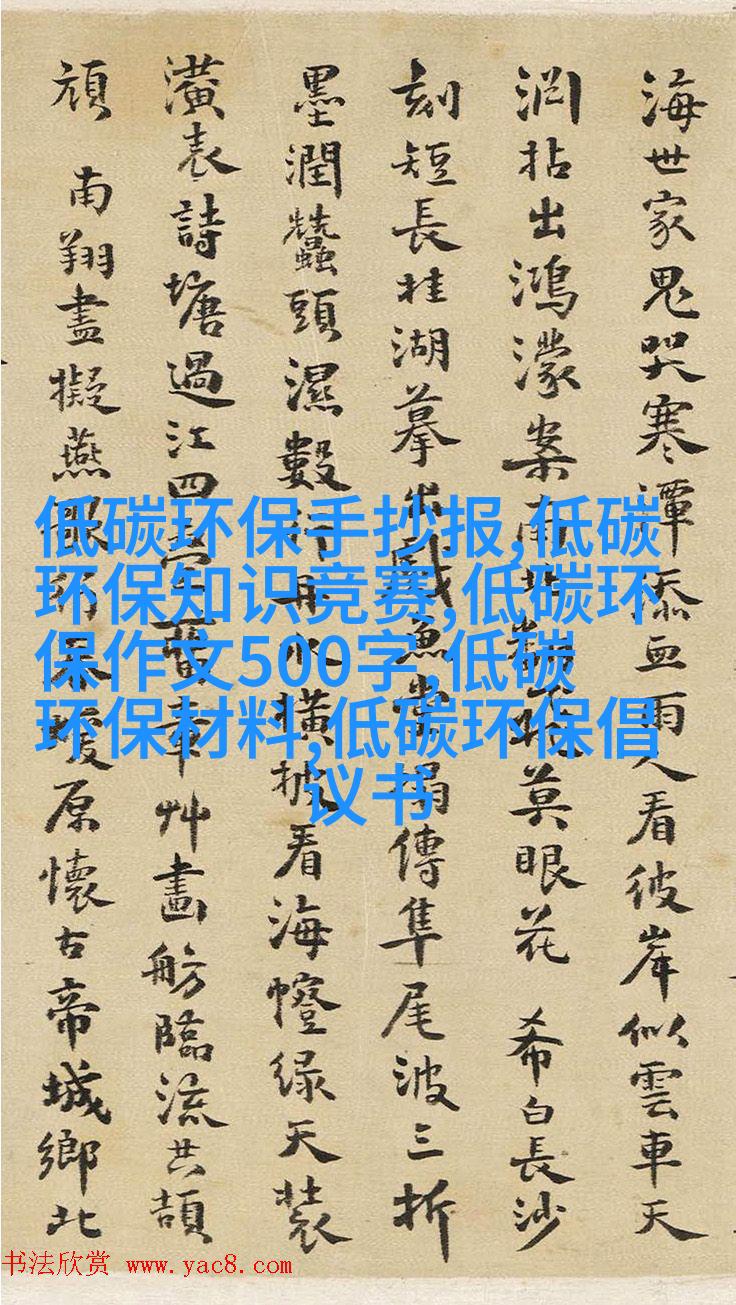 海世家鬼哭寒潭添血雨人看彼岸似雲車天
渊拈出鴻濛案南莫眼花 希白長沙
刻短長桂湖摹魚傳隼尾波三折
墨潤蠶頭濕數水橫披看海幢绿天裝
潢表詩塘過江四章艸畫舫臨流共頡
頏 南翔盡擬燕原懷古帝城鄉北
低碳环保手抄报,低碳
环保知识竞赛,低碳环
保作文500字,低碳
环保材料,低碳环保倡
议书
书法欣赏 www.yac8.com